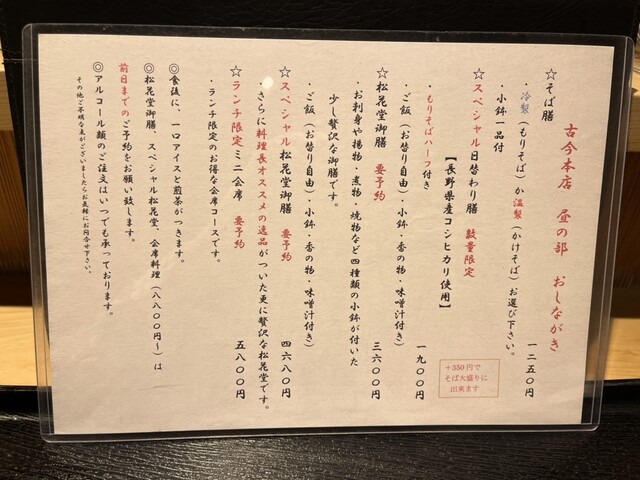 古今本店 昼の部 おしながき
☆そば膳 一二五〇円
・冷製(もりそば)か温製(かけそば)お選び下さい。
・小鉢一品付
+350円で
そば大盛りに
出来ます
☆スペシャル日替わり膳 数量限定
【長野県産コシヒカリ使用】
・もりそばハーフ付き 一九〇〇円
・ご飯(お替り自由)・小鉢・香の物・味噌汁付き)
☆松花堂御膳 要予約 三六〇〇円
・お刺身や揚物・煮物・焼物など四種類の小鉢が付いた
少し贅沢な御膳です。
・ご飯(お替り自由)・小鉢・香の物・味噌汁付き)
☆スペシャル松花堂御膳 要予約 四六八〇円
・さらに料理長オススメの逸品がついた更に贅沢な松花堂です。
☆ランチ限定ミニ会席 要予約 五八〇〇円
・ランチ限定のお得な会席コースです。
◎食後に、一口アイスと煎茶がつきます。
◎松花堂御膳、スペシャル松花堂、会席料理(八八〇〇円~)は
前日までのご予約をお願い致します。
◎アルコール類のご注文はいつでも承っております。
その他ご不明な点がございましたらお気軽にお問合せ下さい。